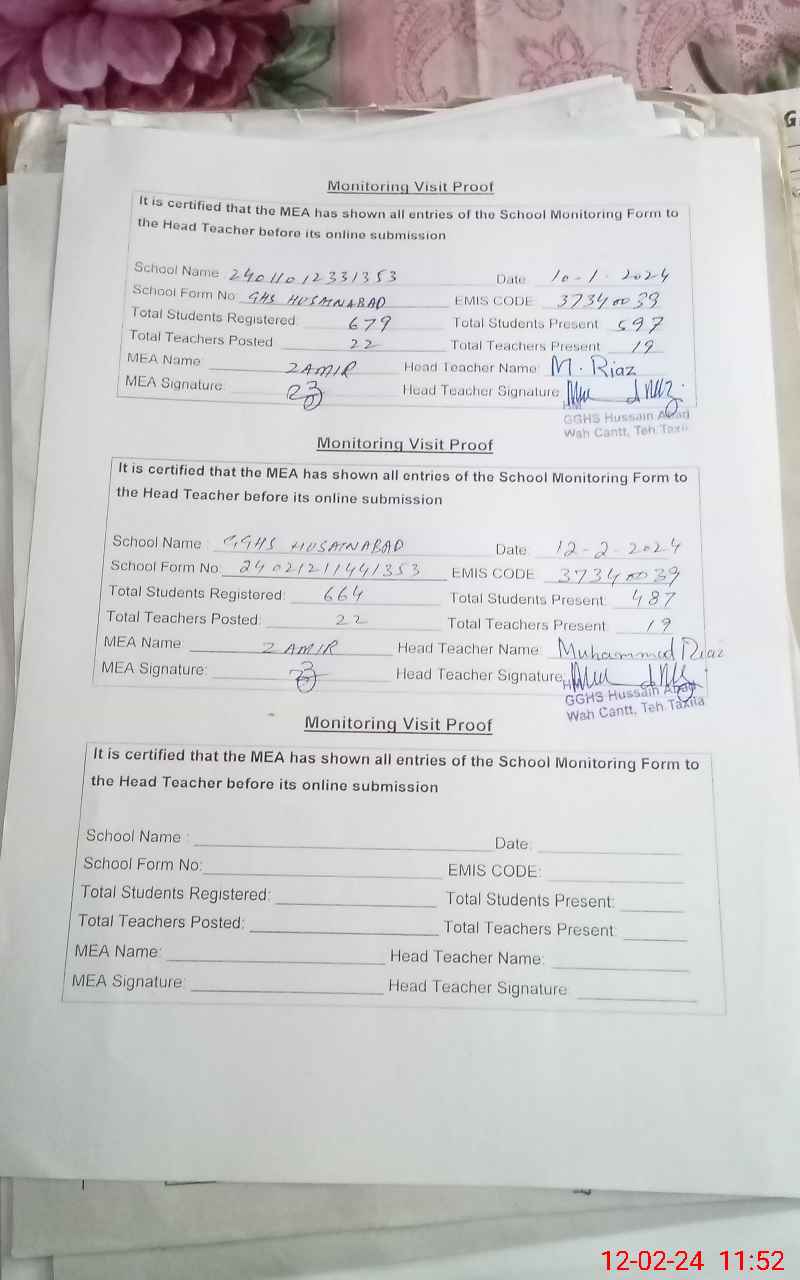 G
Monitoring Visit Proof
It is certified that the MEA has shown all entries of the School Monitoring Form to
the Head Teacher before its online submission
School Name 24011012331353 Date: 10-1-2024
School Form No: GHS HUSAINABAD EMIS CODE 37340039
Total Students Registered: 679 Total Students Present 597
Total Teachers Posted: 22 Total Teachers Present 19
MEA Name: ZAMIR Head Teacher Name: M. Riaz
MEA Signature: Head Teacher Signature
HM
GGHS Hussain Abad
Wah Cantt, Teh Taxila
Monitoring Visit Proof
It is certified that the MEA has shown all entries of the School Monitoring Form to
the Head Teacher before its online submission
School Name : GGHS HUSAINABAD Date: 12-2-2024
School Form No: 24021211441353 EMIS CODE 37340039
Total Students Registered: 664 Total Students Present: 487
Total Teachers Posted: 22 Total Teachers Present: 19
MEA Name: ZAMIR Head Teacher Name: Muhammad Riaz
MEA Signature: Head Teacher Signature
HM
GGHS Hussain Abad
Wah Cantt, Teh Taxila
Monitoring Visit Proof
It is certified that the MEA has shown all entries of the School Monitoring Form to
the Head Teacher before its online submission
School Name : Date:
School Form No: EMIS CODE:
Total Students Registered: Total Students Present:
Total Teachers Posted: Total Teachers Present:
MEA Name: Head Teacher Name:
MEA Signature: Head Teacher Signature
12-02-24 11:52